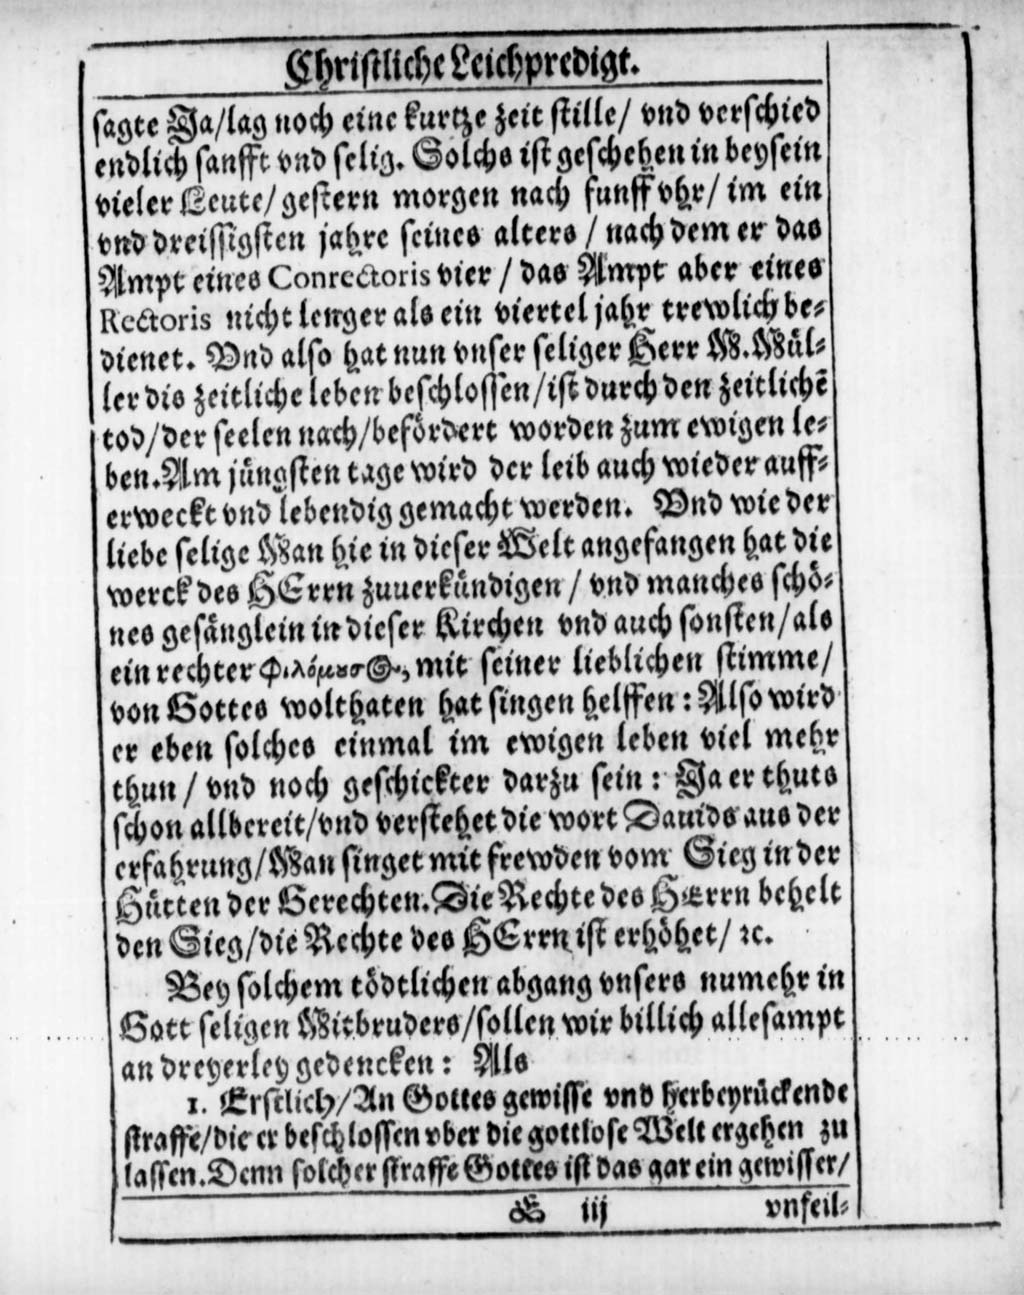 Christliche Leichpredigt.
sagte Ja/lag noch eine kurtze zeit stille/ vnd verschied
endlich sanfft vnd selig. Solchs ist geschehen in beysein
vieler Leute/ gestern morgen nach funff vhr/ im ein
vnd dreissigsten jahre seines alters / nach dem er das
Ampt eines Conrectoris vier / das Ampt aber eines
Rectoris nicht lenger als ein viertel jahr trewlich be-
dienet. Vnd also hat nun vnser seliger Herr M. Mül-
ler dis zeitliche leben beschlossen/ist durch den zeitlichē
tod/der seelen nach/befördert worden zum ewigen le-
ben. Am jüngsten tage wird der leib auch wieder auff-
erweckt vnd lebendig gemacht werden. Vnd wie der
liebe selige Man hie in dieser Welt angefangen hat die
werck des HErrn zuuerkündigen / vnd manches schö-
nes gesänglein in dieser Kirchen vnd auch sonsten/als
ein rechter Φιλόμουσος, mit seiner lieblichen stimme/
von Gottes wolthaten hat singen helffen: Also wird
er eben solches einmal im ewigen leben viel mehr
thun / vnd noch geschickter darzu sein: Ja er thuts
schon allbereit/vnd verstehet die wort Dauids aus der
erfahrung/Man singet mit frewden vom Sieg in der
Hütten der Gerechten. Die Rechte des HErrn behelt
den Sieg/die Rechte des HErrn ist erhöhet/ ꝛc.
Bey solchem tödtlichen abgang vnsers numehr in
Gott seligen Mitbruders/sollen wir billich allesampt
an dreyerley gedencken: Als
1. Erstlich/An Gottes gewisse vnd herbeyrückende
straffe/die er beschlossen vber die gottlose Welt ergehen zu
lassen. Denn solcher straffe Gottes ist das gar ein gewisser/
E iij vnfeil-